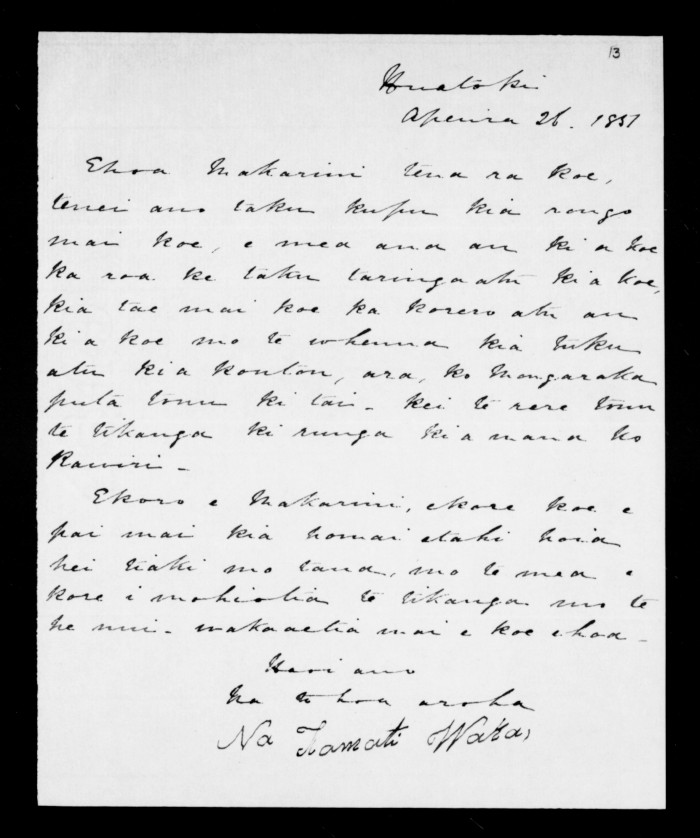 13
Huatoki
Aperira 26. 1851
Ehoa Makarini tena ra koe,
tenei ano taku kupu kia rongo
mai koe, e mea ana au ki a koe
ka roa ke taku taringa atu kia koe,
kia tae mai koe ka korero atu au
ki a koe mo te whenua kia tuku
atu kia koutou, ara, ko Mangaraka
puta tonu ki tai - kei te rere tonu
te tikanga ki runga kia mana ko
Rawiri -
Ekoro e Makarini, ekore koe e
pai mai kia homai etahi hoia
hei tiaki mo tana, mo te mea e
kore i mohiotia te tikanga mo te
he nui - wakaaetia mai e koe ehoa -
Heoi ano
Na to hoa aroha
Na Tamati Waka,